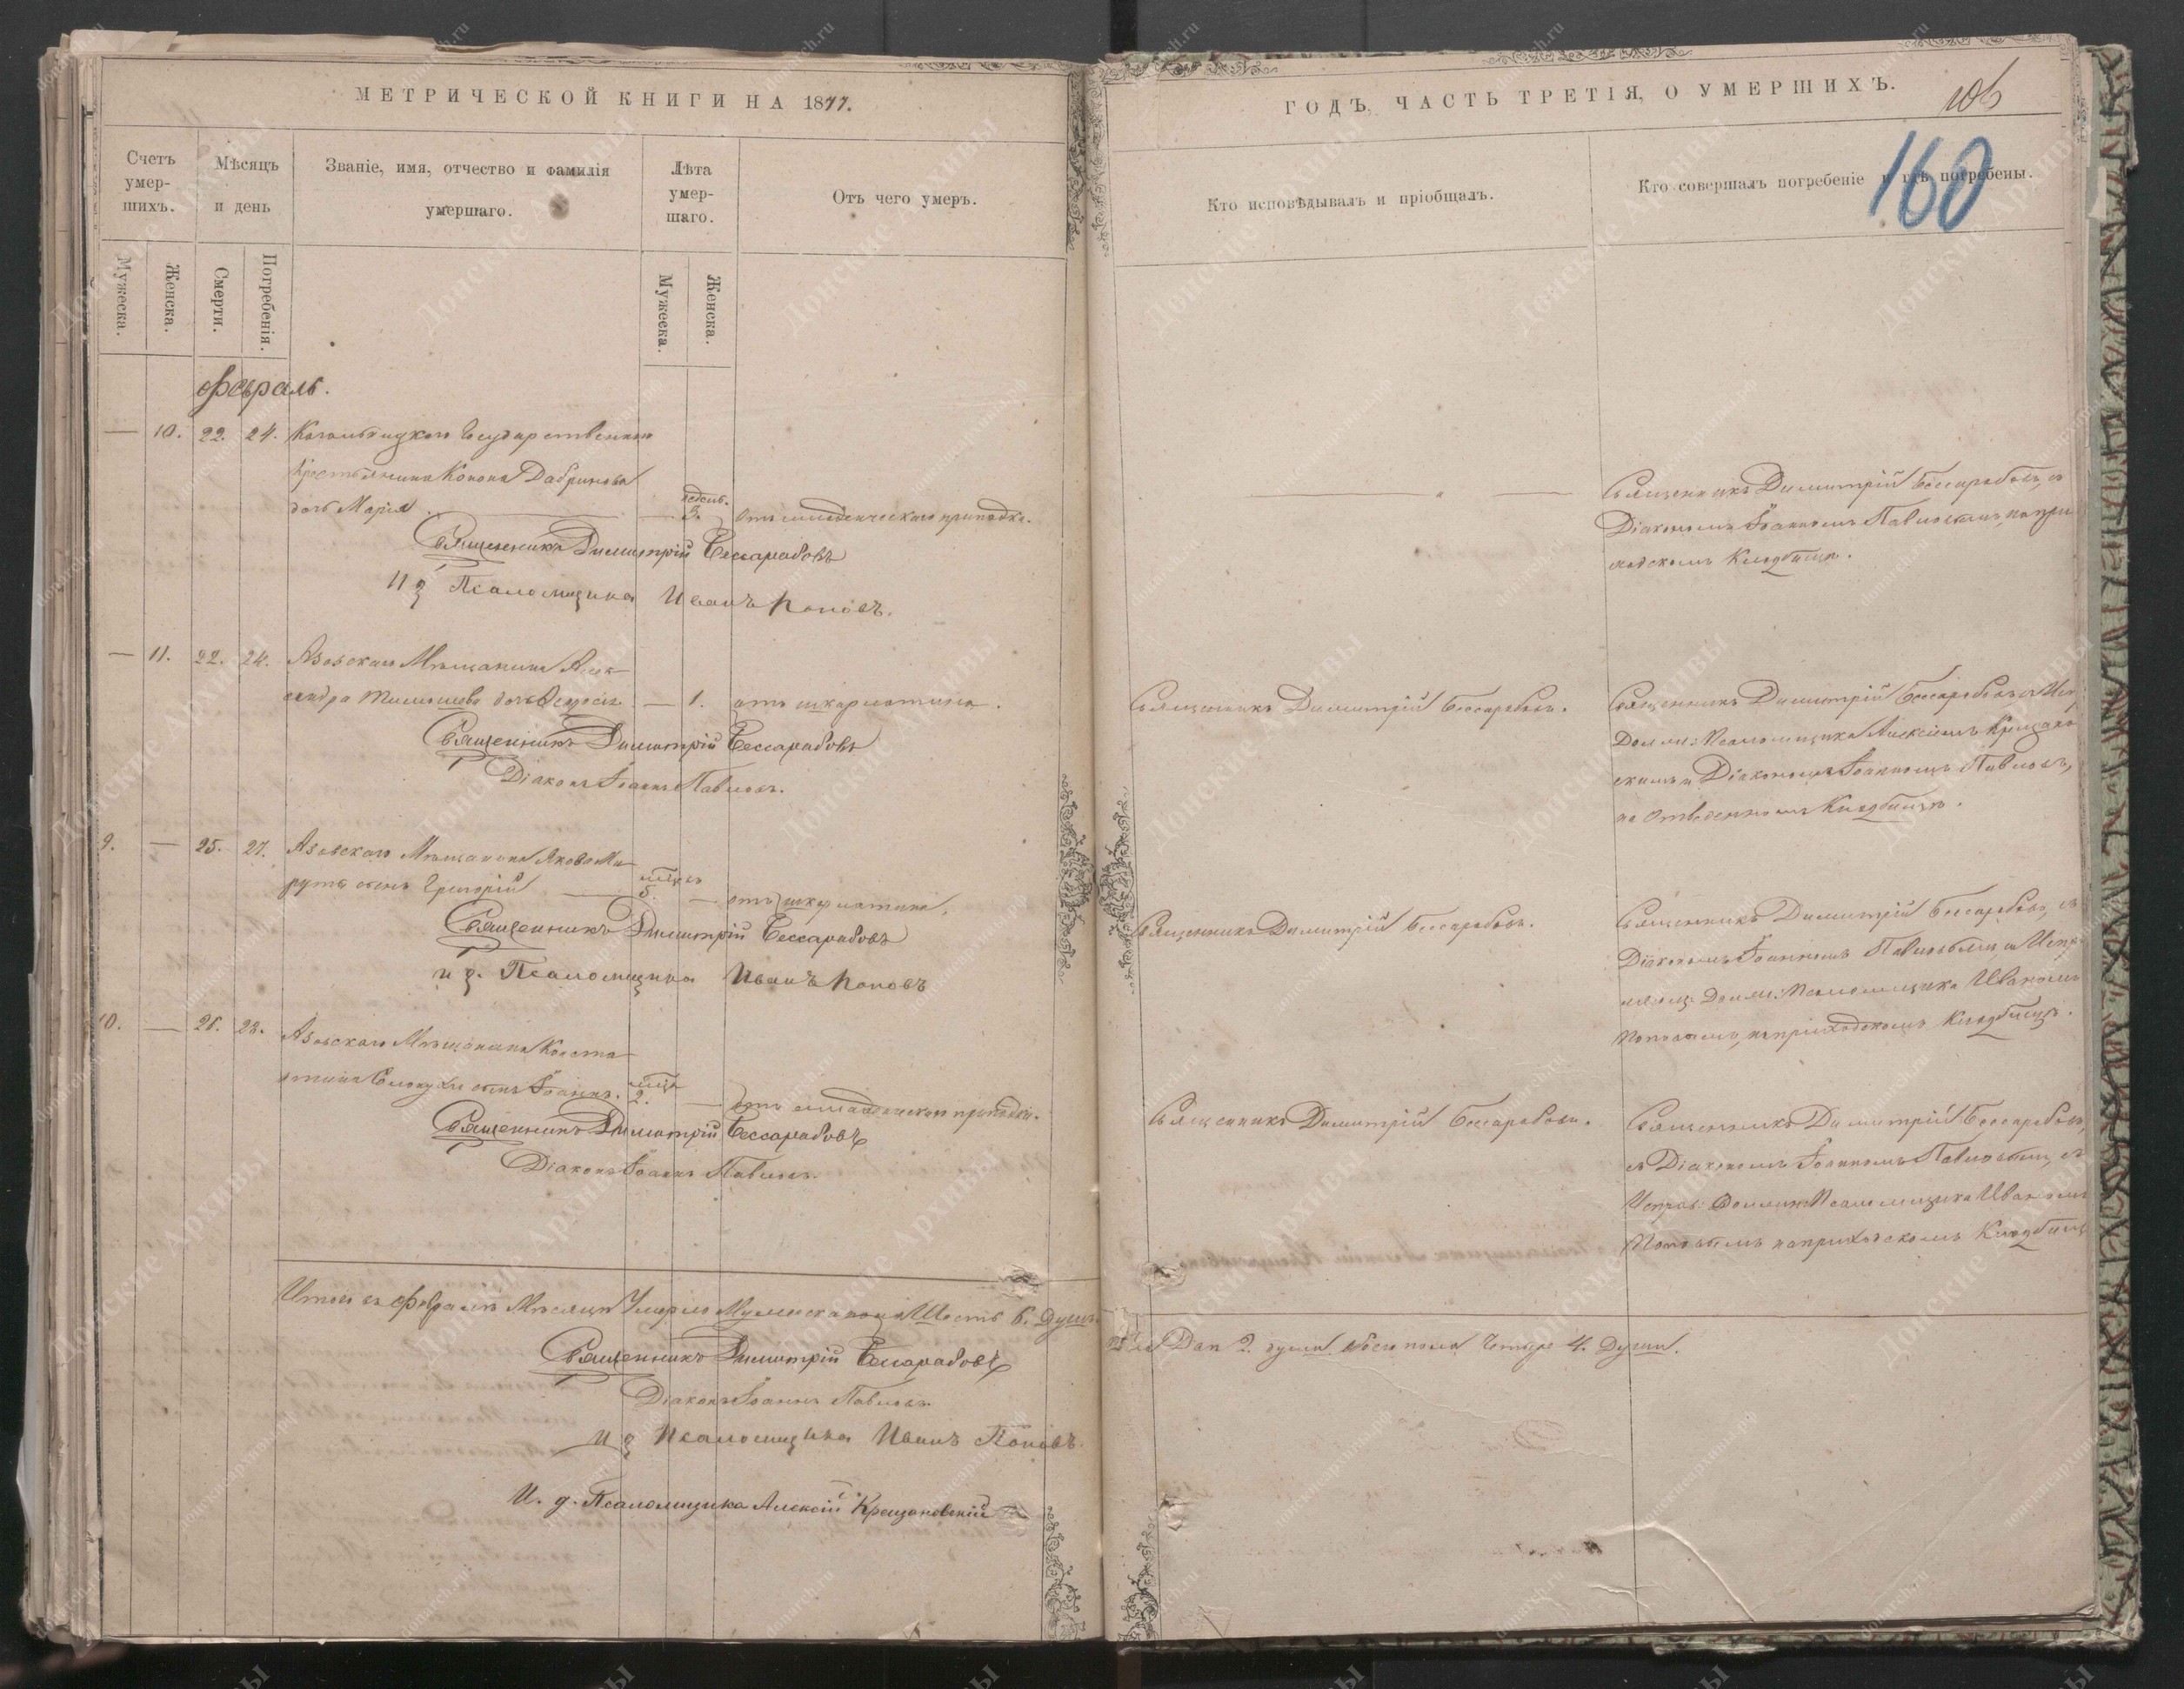 МЕТРИЧЕСКОЙ КНИГИ НА 1877.
Счетъ умер-шихъ.
Мѣсяцъ и день
Званіе, имя, отчество и фамилія умершаго.
Лѣта умер-шаго.
Отъ чего умеръ.
Мужеска.
Женска.
Смерти.
Погребенія.
Мужеска.
Женска.
Февраль.
— 10. 22. 24. Кагальницкаго Государственнаго
Крестьянина Конона
дочь Марія — недѣль. 3. Отъ младенческаго припадка.
Священникъ Димитрій Бессарабовъ
И д Псаломщика Иванъ Поповъ.
— 11. 22. 24. Азовскаго Мѣщанина Алек-
сандра дочь — 1. отъ шкарлатина.
Священникъ Димитрій Бессарабовъ
Діаконъ Іоаннъ Павловъ.
9. — 25. 27. Азовскаго Мѣщанина Якова
сынъ Григорій — 5. — отъ шкарлатина.
Священникъ Димитрій Бессарабовъ
и д. Псаломщика Иванъ Поповъ
10. — 26. 28. Азовскаго Мѣщанина Конста-
нтина сынъ Іоаннъ. 2. — Отъ младенческаго припадка.
Священникъ Димитрій Бессарабовъ
Діаконъ Іоаннъ Павловъ.
Итого въ Февралѣ Мѣсяцѣ Умерло Мужеска пола Шесть 6. Душъ
Священникъ Димитрій Бессарабовъ
Діаконъ Іоаннъ Павловъ.
И д Псаломщика Иванъ Поповъ.
И. д. Псаломщика Алексій Крещановскій
ГОДЪ, ЧАСТЬ ТРЕТІЯ, О УМЕРШИХЪ.
106
160
Кто исповѣдывалъ и пріобщалъ.
Кто совершалъ погребеніе и гдѣ погребены.
— —
Священникъ Димитрій Бессарабовъ, съ
Діакономъ Іоанномъ Павловымъ, на при-
ходскомъ Кладбищѣ.
Священникъ Димитрій Бессарабовъ.
Священникъ Димитрій Бессарабовъ, съ Исп.
Долж: Псаломщика Алексіемъ Крещанов-
скимъ и Діакономъ Іоанномъ Павловъ,
на Отведенномъ Кладбищѣ.
Священникъ Димитрій Бессарабовъ.
Священникъ Димитрій Бессарабовъ, съ
Діакономъ Іоанномъ Павловымъ, и
Долж: Псаломщика Иваномъ
Поповымъ, на приходскомъ Кладбищѣ.
Священникъ Димитрій Бессарабовъ.
Священникъ Димитрій Бессарабовъ,
съ Діакономъ Іоанномъ Павловымъ, съ
Исправ: Должн: Псаломщика Иваномъ
Поповымъ на приходскомъ Кладбищѣ
2. души обоего пола Четыре 4. Души.